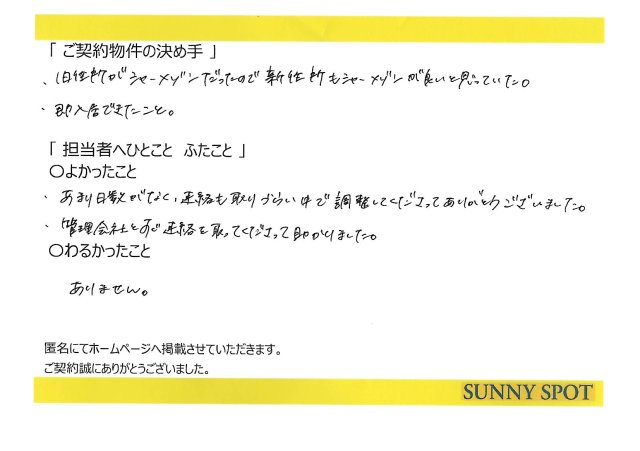 「 ご契約物件の決め手 」
・旧住所がシャーメゾンだったので新住所もシャーメゾンが良いと思っていた。
・即入居できたこと。
「 担当者へひとこと ふたこと 」
〇よかったこと
・あまり日数がなく、連絡も取りづらい中で調整してくださってありがとうございました。
・管理会社とすぐ連絡を取ってくださって助かりました。
〇わるかったこと
ありません。
匿名にてホームページへ掲載させていただきます。
ご契約誠にありがとうございました。
SUNNY SPOT